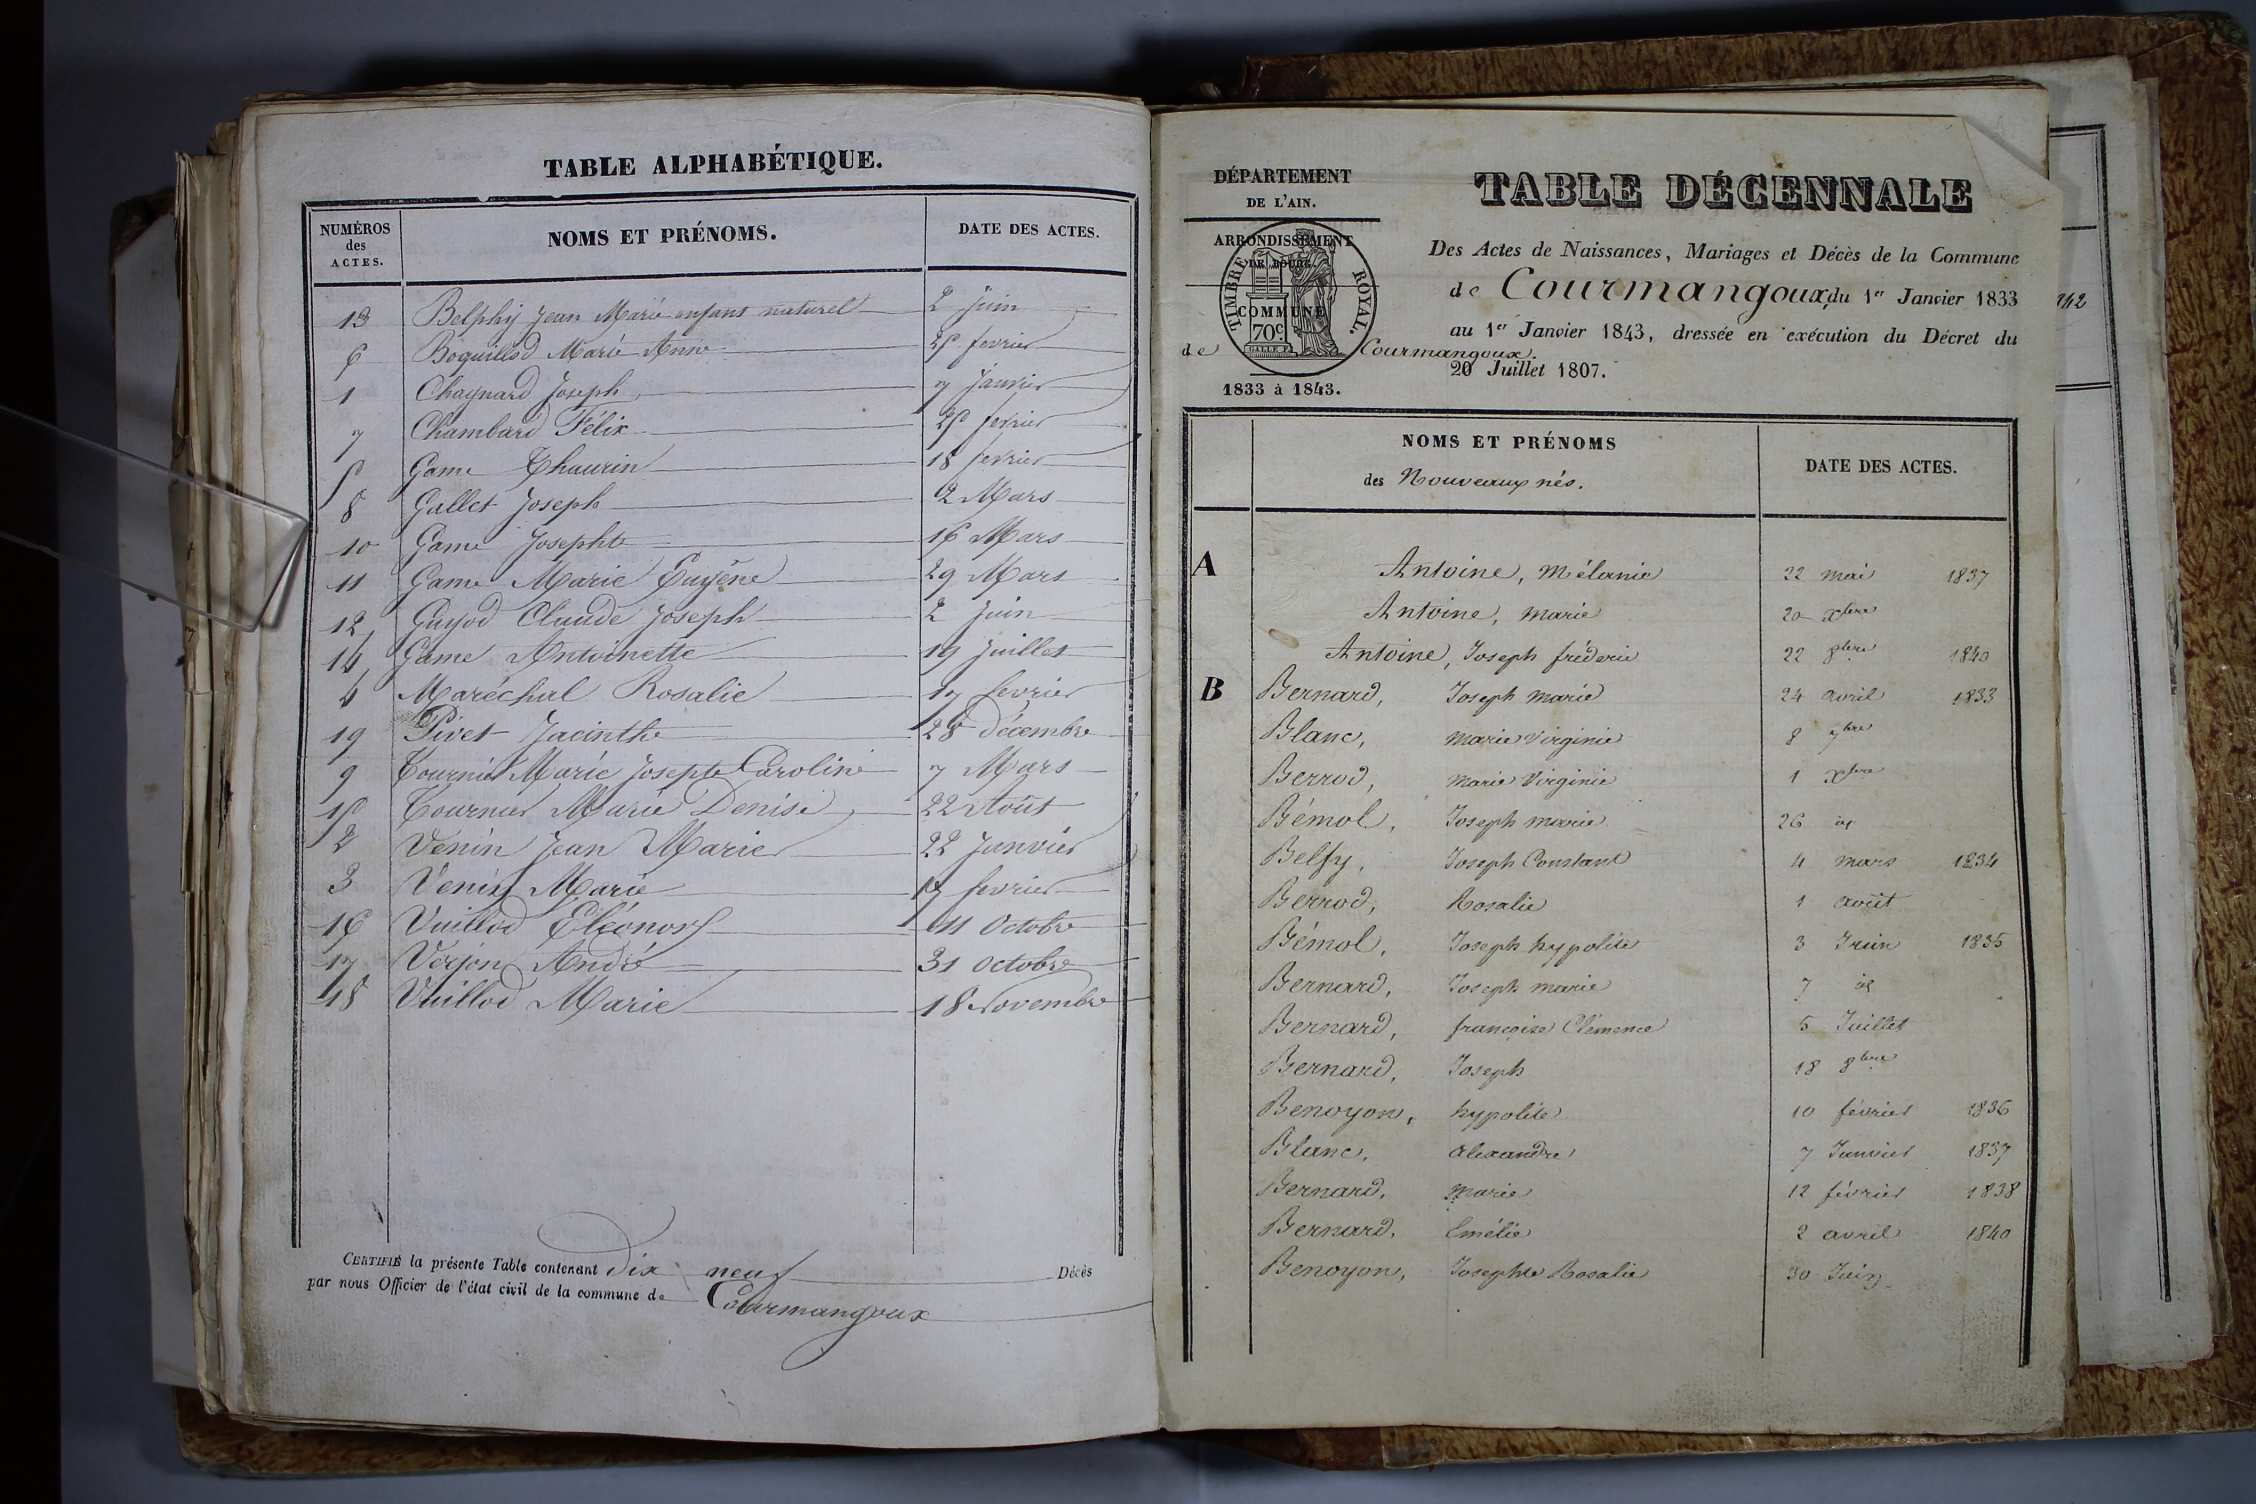 TABLE ALPHABÉTIQUE.
NUMÉROS des ACTES. NOMS ET PRÉNOMS. DATE DES ACTES.
13 Belphy Jean Marie enfant naturel 2 Juin
6 Boquillod Marie Anne 25 fevrier
1 Chagnard Joseph 7 Janvier
7 Chambard Félix 25 fevrier
5 Game Thaurin 18 fevrier
8 Gallet Joseph 2 Mars
10 Game Josephte 16 Mars
11 Game Marie Eugène 29 Mars
12 Guyod Claude Joseph 2 Juin
14 Game Antoinette 19 Juillet
4 Maréchal Rosalie 17 fevrier
19 Pivet Jacinthe 28 décembre
9 Tournier Marie Josepte Caroline 7 Mars
15 Tournier Marie Denise 22 Août
2 Venin Jean Marie 22 Janvier
3 Venin Marie 17 fevrier
16 Vuillod Eléonore 11 Octobre
17 Verjon André 31 Octobre
18 Vuillod Marie 18 Novembre
CERTIFIÉ la présente Table contenant dix neuf Décès
par nous Officier de l'état civil de la commune de Courmangoux
DÉPARTEMENT
DE L'AIN.
ARRONDISSEMENT
DE BOURG.
TIMBRE ROYAL.
COMMUNE
70c
de Courmangoux.
1833 à 1843.
TABLE DÉCENNALE
Des Actes de Naissances, Mariages et Décès de la Commune
de Courmangoux, du 1er Janvier 1833
au 1er Janvier 1843, dressée en exécution du Décret du
20 Juillet 1807.
NOMS ET PRÉNOMS
des Nouveaux nés.
DATE DES ACTES.
A Antoine, Mélanie 22 mai 1837
Antoine, Marie 20 xbre
Antoine, Joseph fréderic 22 8bre 1840
B Bernard, Joseph Marie 24 avril 1833
Blanc, Marie Virginie 8 7bre
Berrod, Marie Virginie 1 xbre
Bémol, Joseph Marie 26 id
Belfy, Joseph Constant 4 mars 1834
Berrod, Rosalie 1 août
Bémol, Joseph hypolite 3 Juin 1835
Bernard, Joseph Marie 7 id
Bernard, françoise Clémence 5 Juillet
Bernard, Joseph 18 8bre
Benoyon, hypolite 10 février 1836
Blanc, alexandre 7 Janvier 1837
Bernard, Marie 12 février 1838
Bernard, Emélie 2 avril 1840
Benoyon, Josephte Rosalie 30 Juin